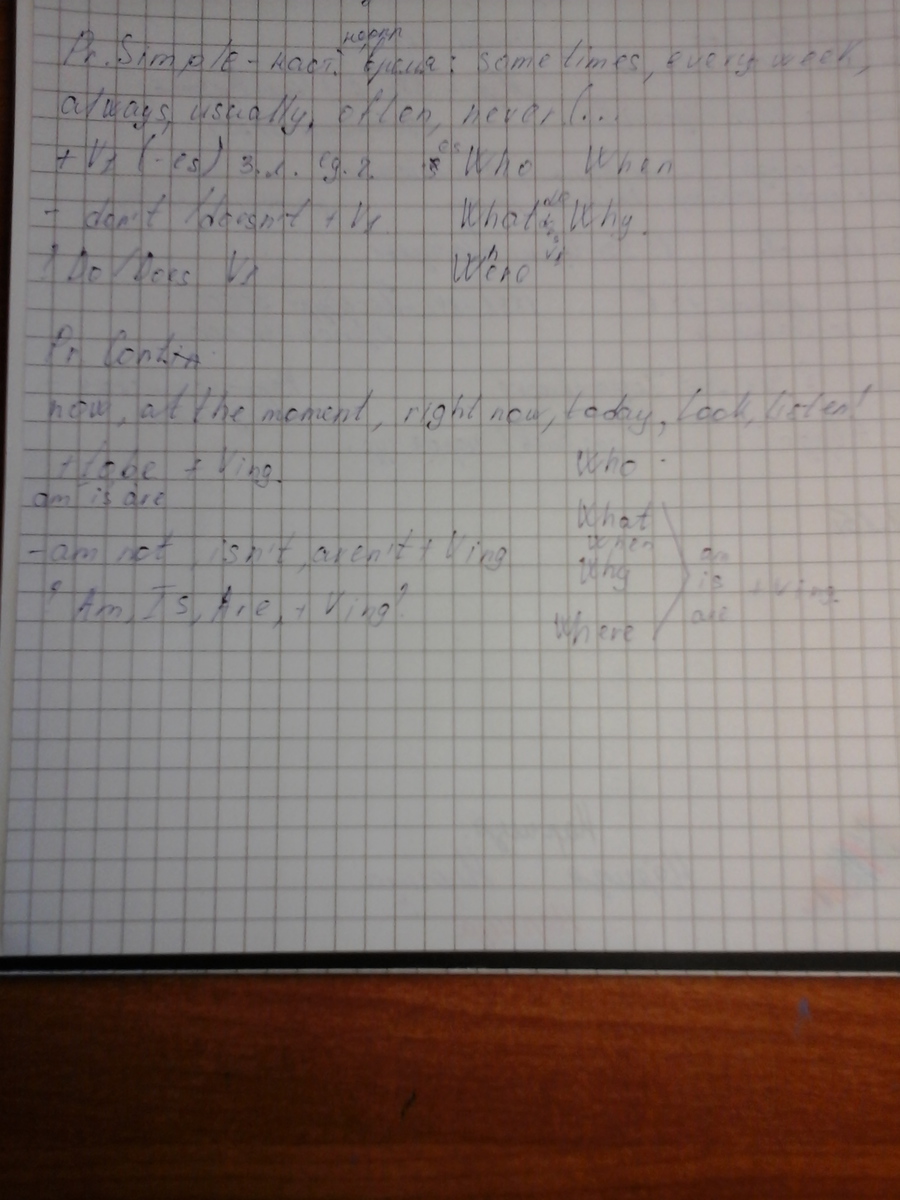 норм
Pr. Simple - наст. время: sometimes, every week,
always, usually, often, never (...
+ V1 (-es) 3.л. ед.ч. es Who When
s
- don't /doesn't + V1 What do Why
? Do/Does V1 Where V1
Pr Contin.
now, at the moment, right now, today, Look, listen!
+ to be + Ving. Who -
am is are
What
- am not, isn't, aren't + Ving When am
Why is + Ving
? Am, Is, Are, + Ving? are
Where